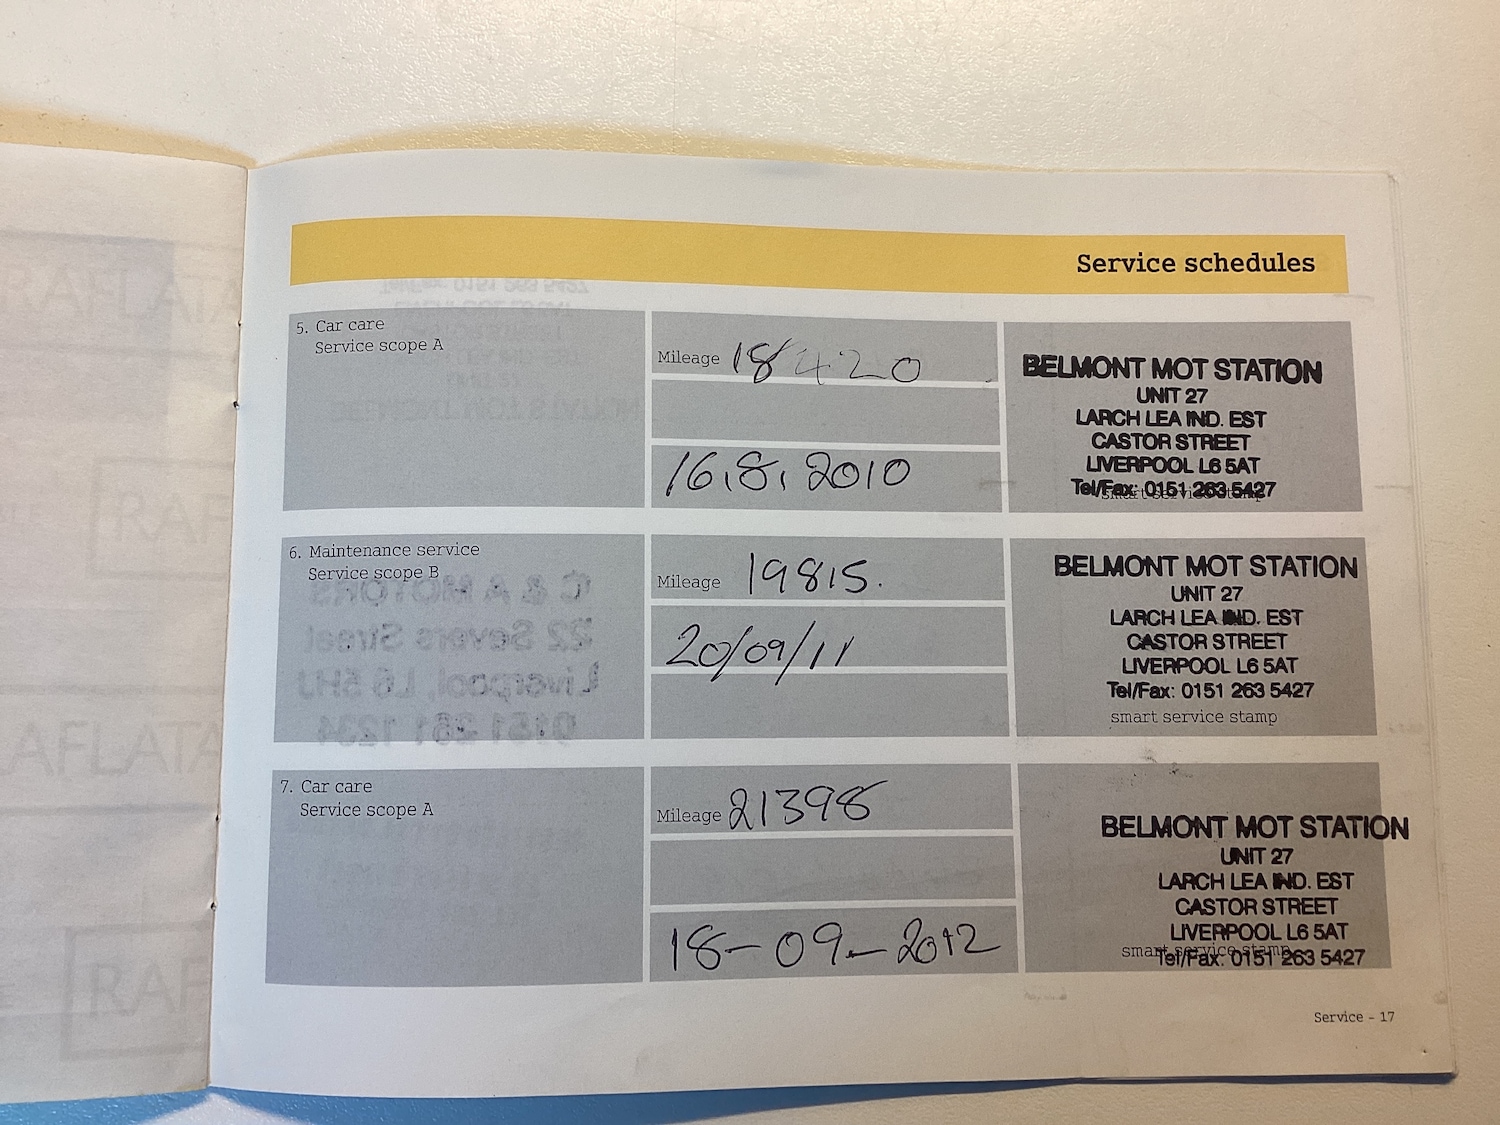 Service schedules
5. Car care
Service scope A
Mileage 18420
16.8.2010
BELMONT MOT STATION
UNIT 27
LARCH LEA IND. EST
CASTOR STREET
LIVERPOOL L6 5AT
Tel/Fax: 0151 263 5427
smart service stamp
6. Maintenance service
Service scope B
Mileage 19815.
20/09/11
BELMONT MOT STATION
UNIT 27
LARCH LEA IND. EST
CASTOR STREET
LIVERPOOL L6 5AT
Tel/Fax: 0151 263 5427
smart service stamp
C & A MOTORS
22 Severs Street
Liverpool, L6 5HJ
7. Car care
Service scope A
Mileage 21398
18-09-2012
BELMONT MOT STATION
UNIT 27
LARCH LEA IND. EST
CASTOR STREET
LIVERPOOL L6 5AT
smart service stamp
Tel/Fax: 0151 263 5427
Service - 17
RAFLATA
RAF
AFLATA
RAF